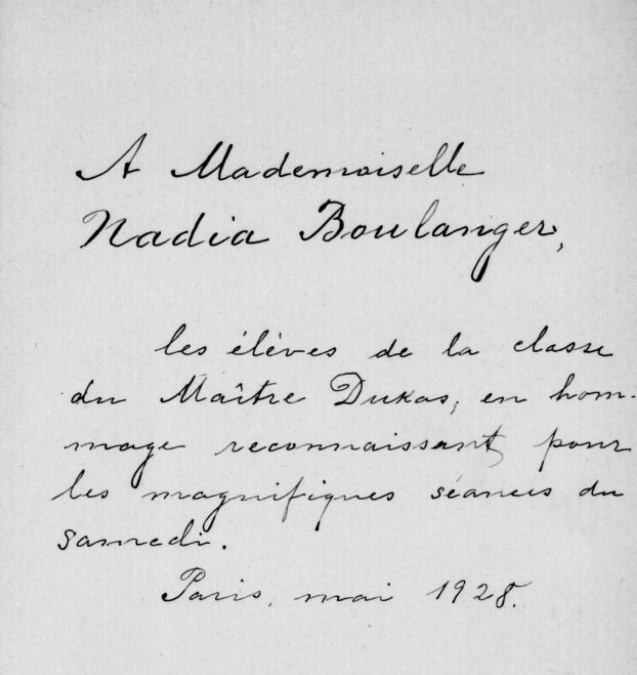 A Mademoiselle
Nadia Boulanger,
les élèves de la classe
du Maître Dukas, en hom-
mage reconnaissant, pour
les magnifiques séances du
samedi.
Paris, mai 1928.